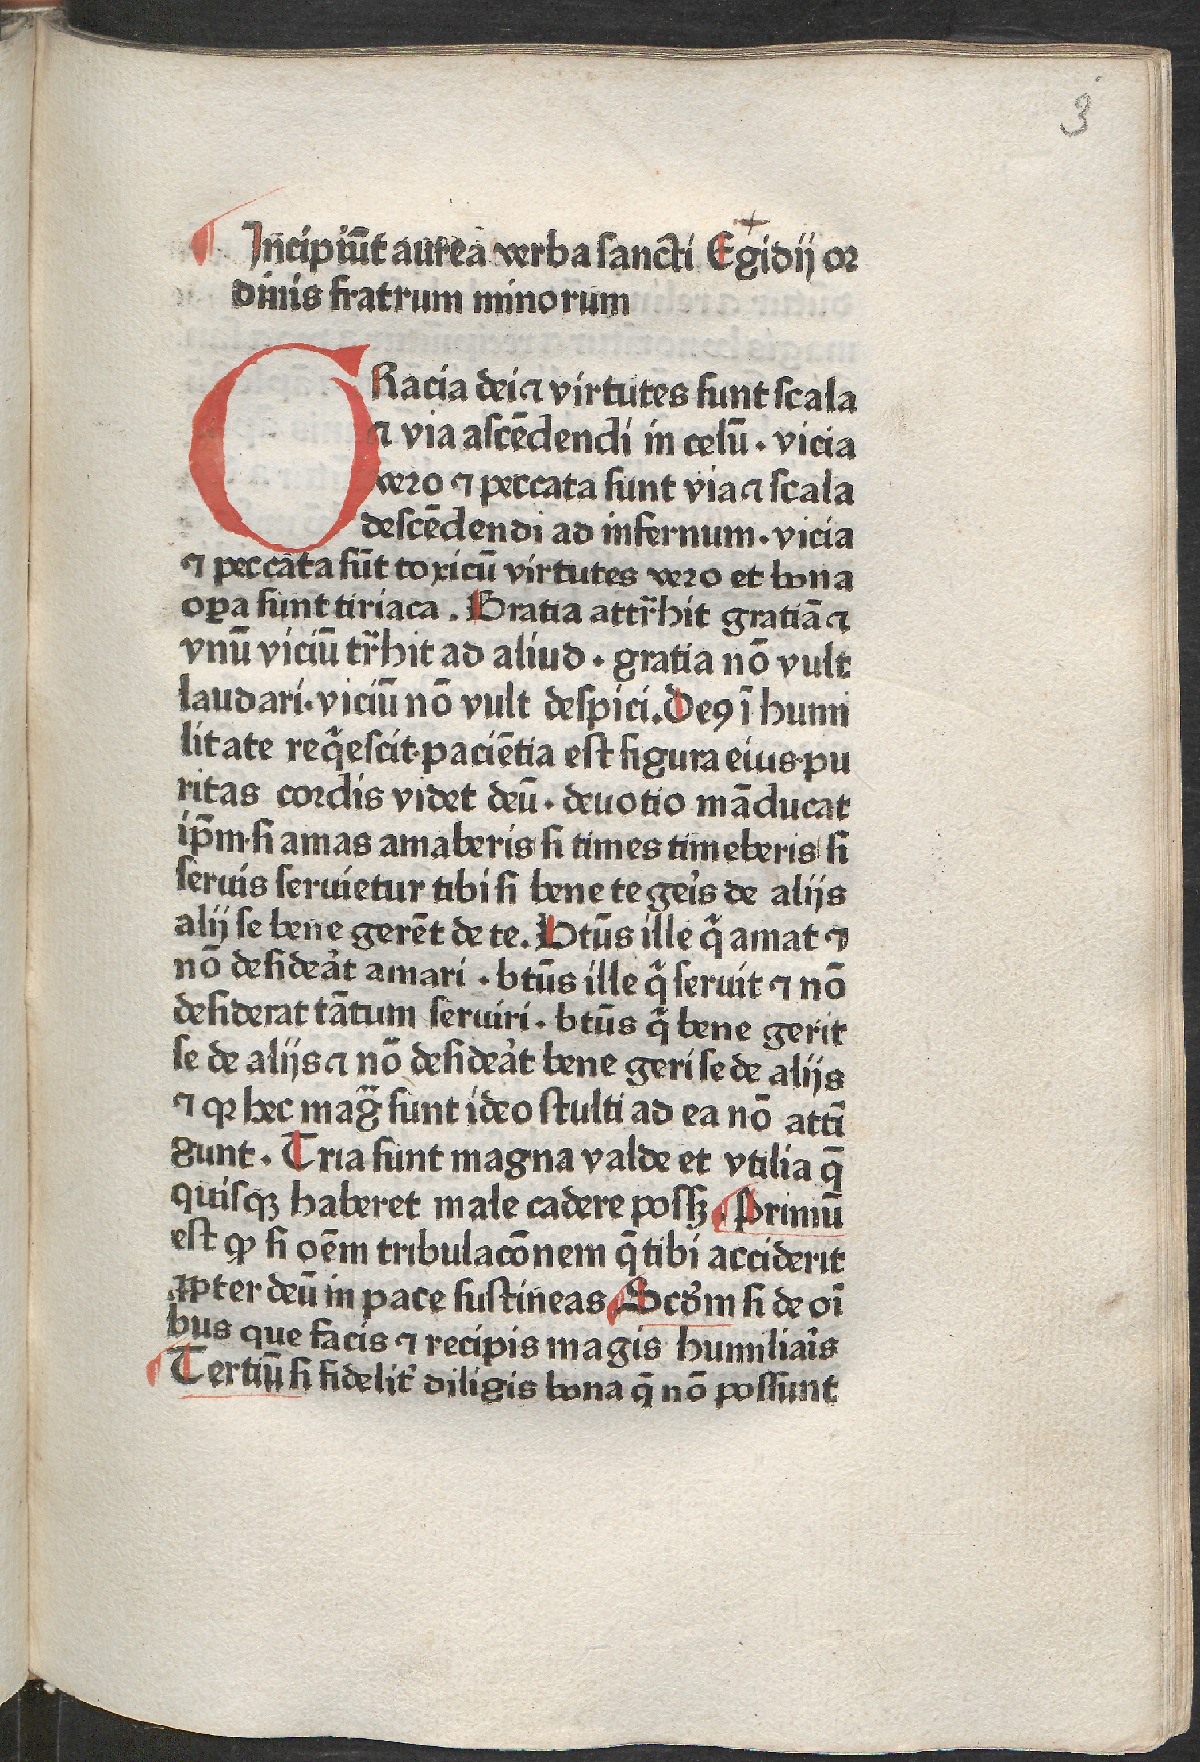 3
Incipiūt aurea verba sancti Egidij or
dinis fratrum minorum
GRacia dei ⁊ virtutes sunt scala
⁊ via ascēdendi in celū . vicia
vero ⁊ peccata sunt via ⁊ scala
descēdendi ad infernum . vicia
⁊ peccata sūt toxicū virtutes vero et bona
oꝑa sunt tiriaca . Gratia attr̄hit gratiā ⁊
vnū viciū tr̄hit ad aliud . gratia nō vult
laudari . viciū nō vult despici . Deꝯ ī humi
litate req̄escit . paciētia est figura eius . pu
ritas cordis videt deū . deuotio māducat
ip̄m . si amas amaberis si times timeberis si
seruis seruietur tibi si bene te geris de alijs
alij se bene gerēt de te . Btūs ille q̄ amat ⁊
nō desideat amari . btūs ille q̄ seruit ⁊ nō
desiderat tātum seruiri . btūs q̄ bene gerit
se de alijs ⁊ nō desideat bene geri se de alijs
⁊ qꝛ hec maḡ sunt ideo stulti ad ea nō attī
gunt . Tria sunt magna valde et vtilia q̄
quisqꝫ haberet male cadere possꝫ . Primū
est ꝙ si oēm tribulacōnem q̄ tibi acciderit
ꝓpter deū in pace sustineas Scd̓m si de oī
bus que facis ⁊ recipis magis humiliaris
Tertiū si fidelit̓ diligis bona q̄ nō possunt